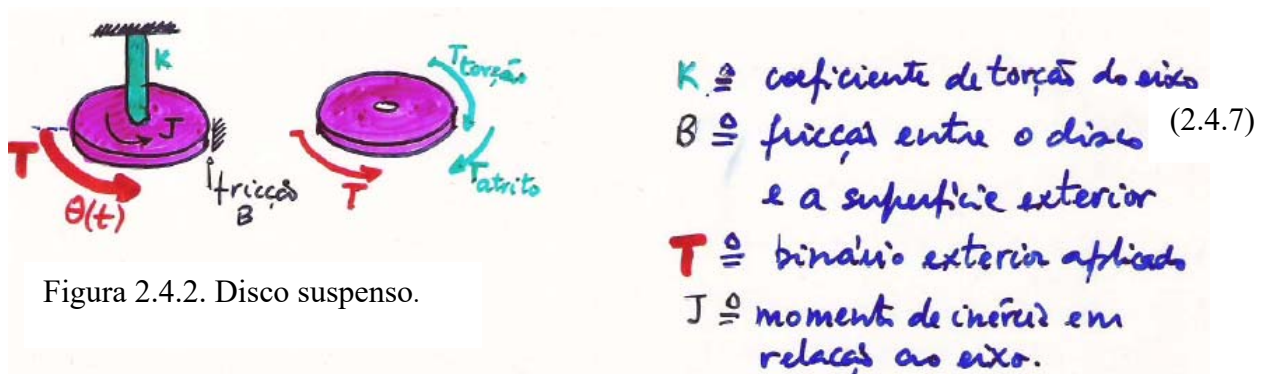 K
J
T
θ(t)
fricção
B
T
Ttorção
Tatrito
Figura 2.4.2. Disco suspenso.
K ≙ coeficiente de torção do eixo
B ≙ fricção entre o disco
e a superfície exterior
(2.4.7)
T ≙ binário exterior aplicado
J ≙ momento de inércia em
relação ao eixo.